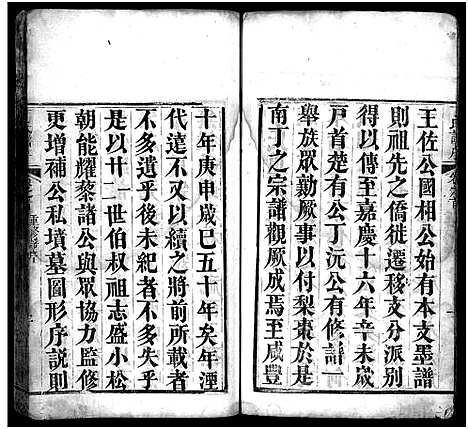 王佐公國相公始有本支墨譜
則祖先之僑徙遷移支分派別
得以傳至嘉慶十六年辛未歲
戸首楚有公丁沅公有修譜一
舉族眾勷厥事以付梨棗於是
南丁之宗譜觀厥成焉至咸豐
十年庚申歲巳五十年矣年湮
代遠不以續之將前所載者
不多遺乎後未紀者不多失乎
是以廿一世伯叔祖志盛小松
朝能耀藜諸公與眾協力監修
更增補公私墳墓圖形序說則